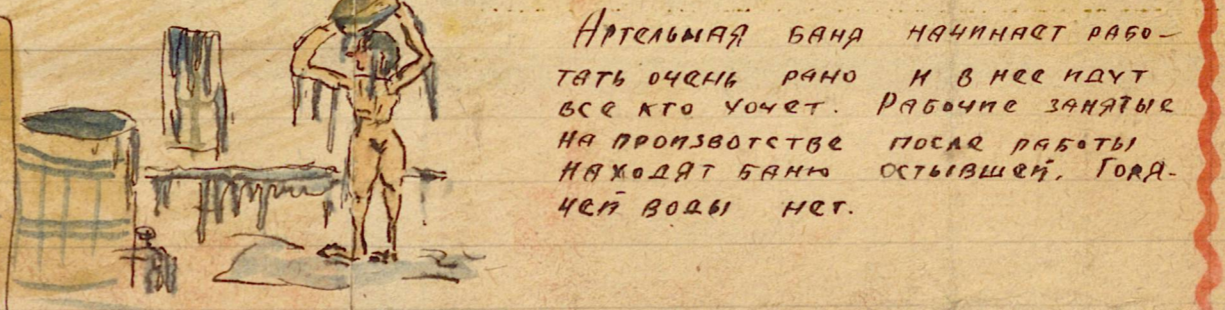 Артельная баня начинает рабо-
тать очень рано и в нее идут
все кто хочет. Рабочие занятые
на произвотстве после работы
находят баню остывшей. Горя-
чей воды нет.